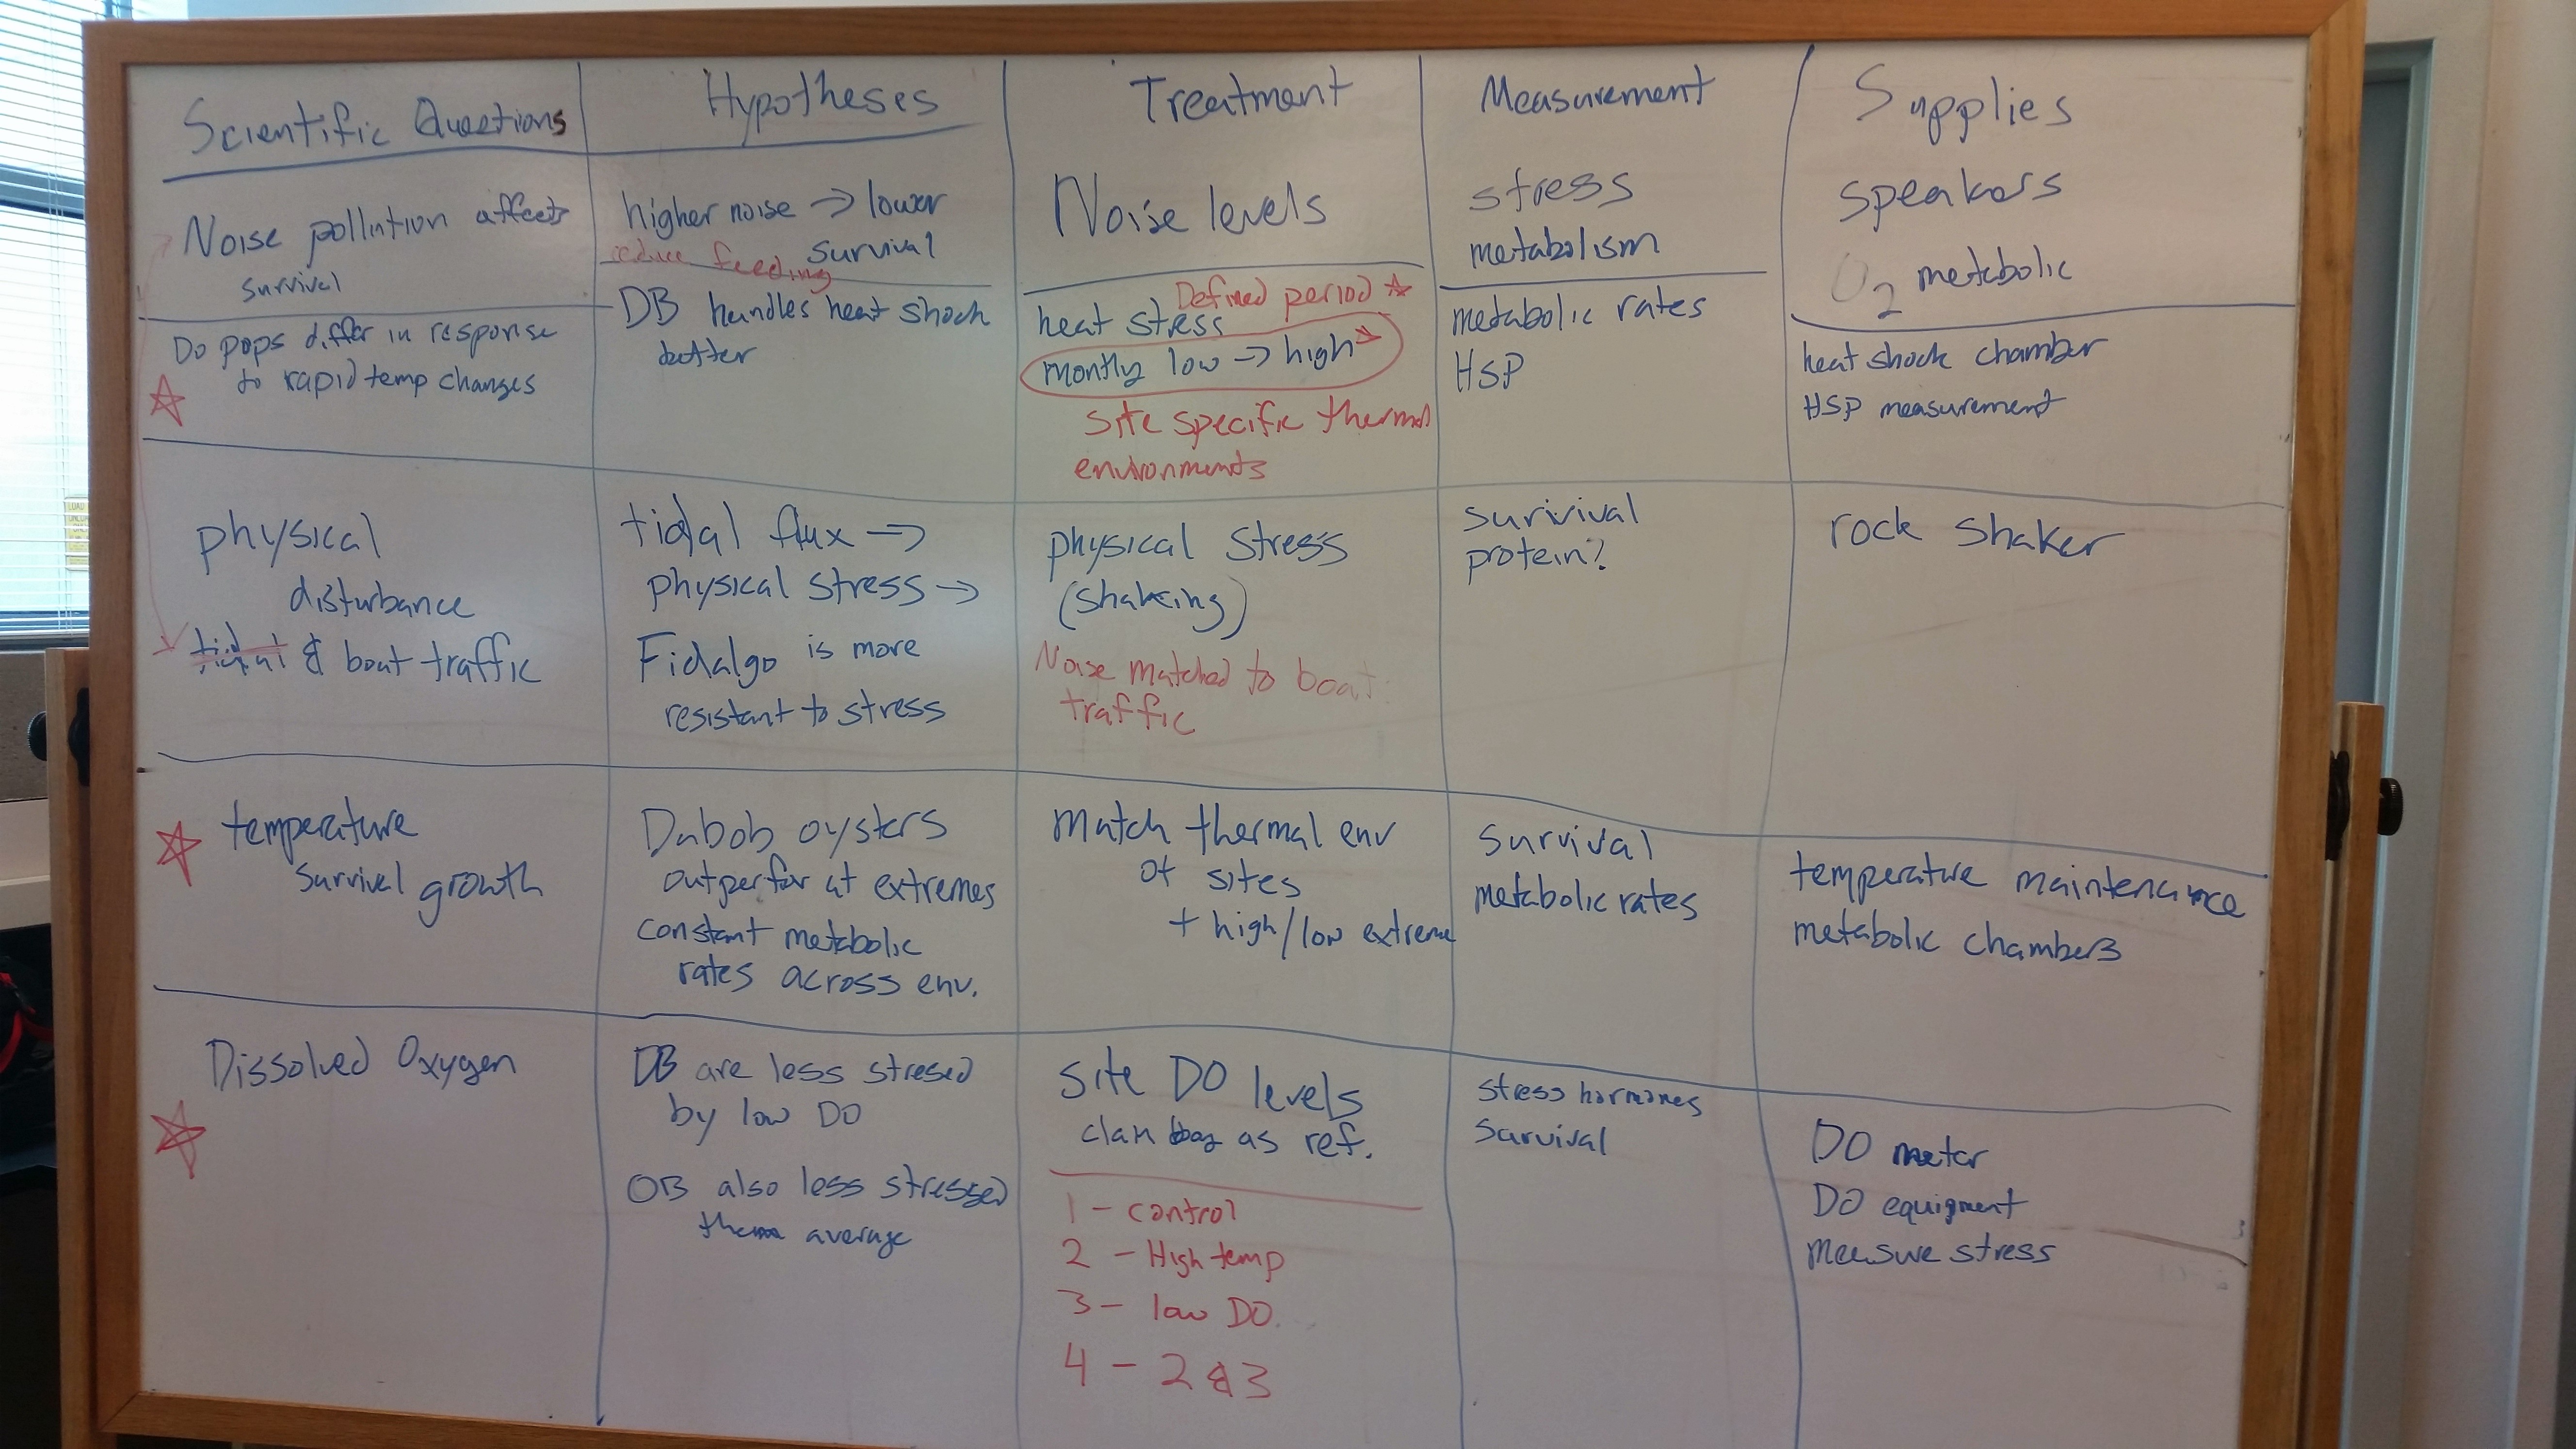 Scientific Questions
Hypotheses
Treatment
Measurement
Supplies
Noise pollution affects
survival
higher noise → lower
survival
reduce feeding
Noise levels
stress
metabolism
speakers
O2 metabolic
Do pops differ in response
to rapid temp changes
DB handles heat shock
better
Defined period
heat stress
montly low → high
site specific thermal
environments
metabolic rates
HSP
heat shock chamber
HSP measurement
physical
disturbance
tidal & boat traffic
tidal flux →
physical stress →
Fidalgo is more
resistant to stress
physical stress
(shaking)
Noise matched to boat
traffic
surivival
protein?
rock shaker
temperature
survival growth
Dabob oysters
outperfor at extremes
constant metabolic
rates across env.
Match thermal env
of sites
+ high/low extreme
survival
metabolic rates
temperature maintenance
metabolic chambers
Dissolved Oxygen
DB are less stresed
by low DO
OB also less stressed
average
site DO levels
clam bay as ref.
1 - control
2 - High temp
3 - low DO
4 - 2 & 3
stress hormones
survival
DO meter
DO equipment
measure stress